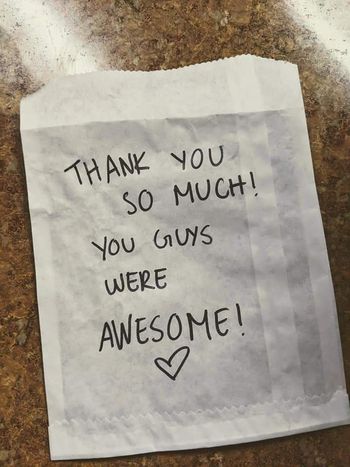 THANK YOU
SO MUCH!
YOU GUYS
WERE
AWESOME!
♡